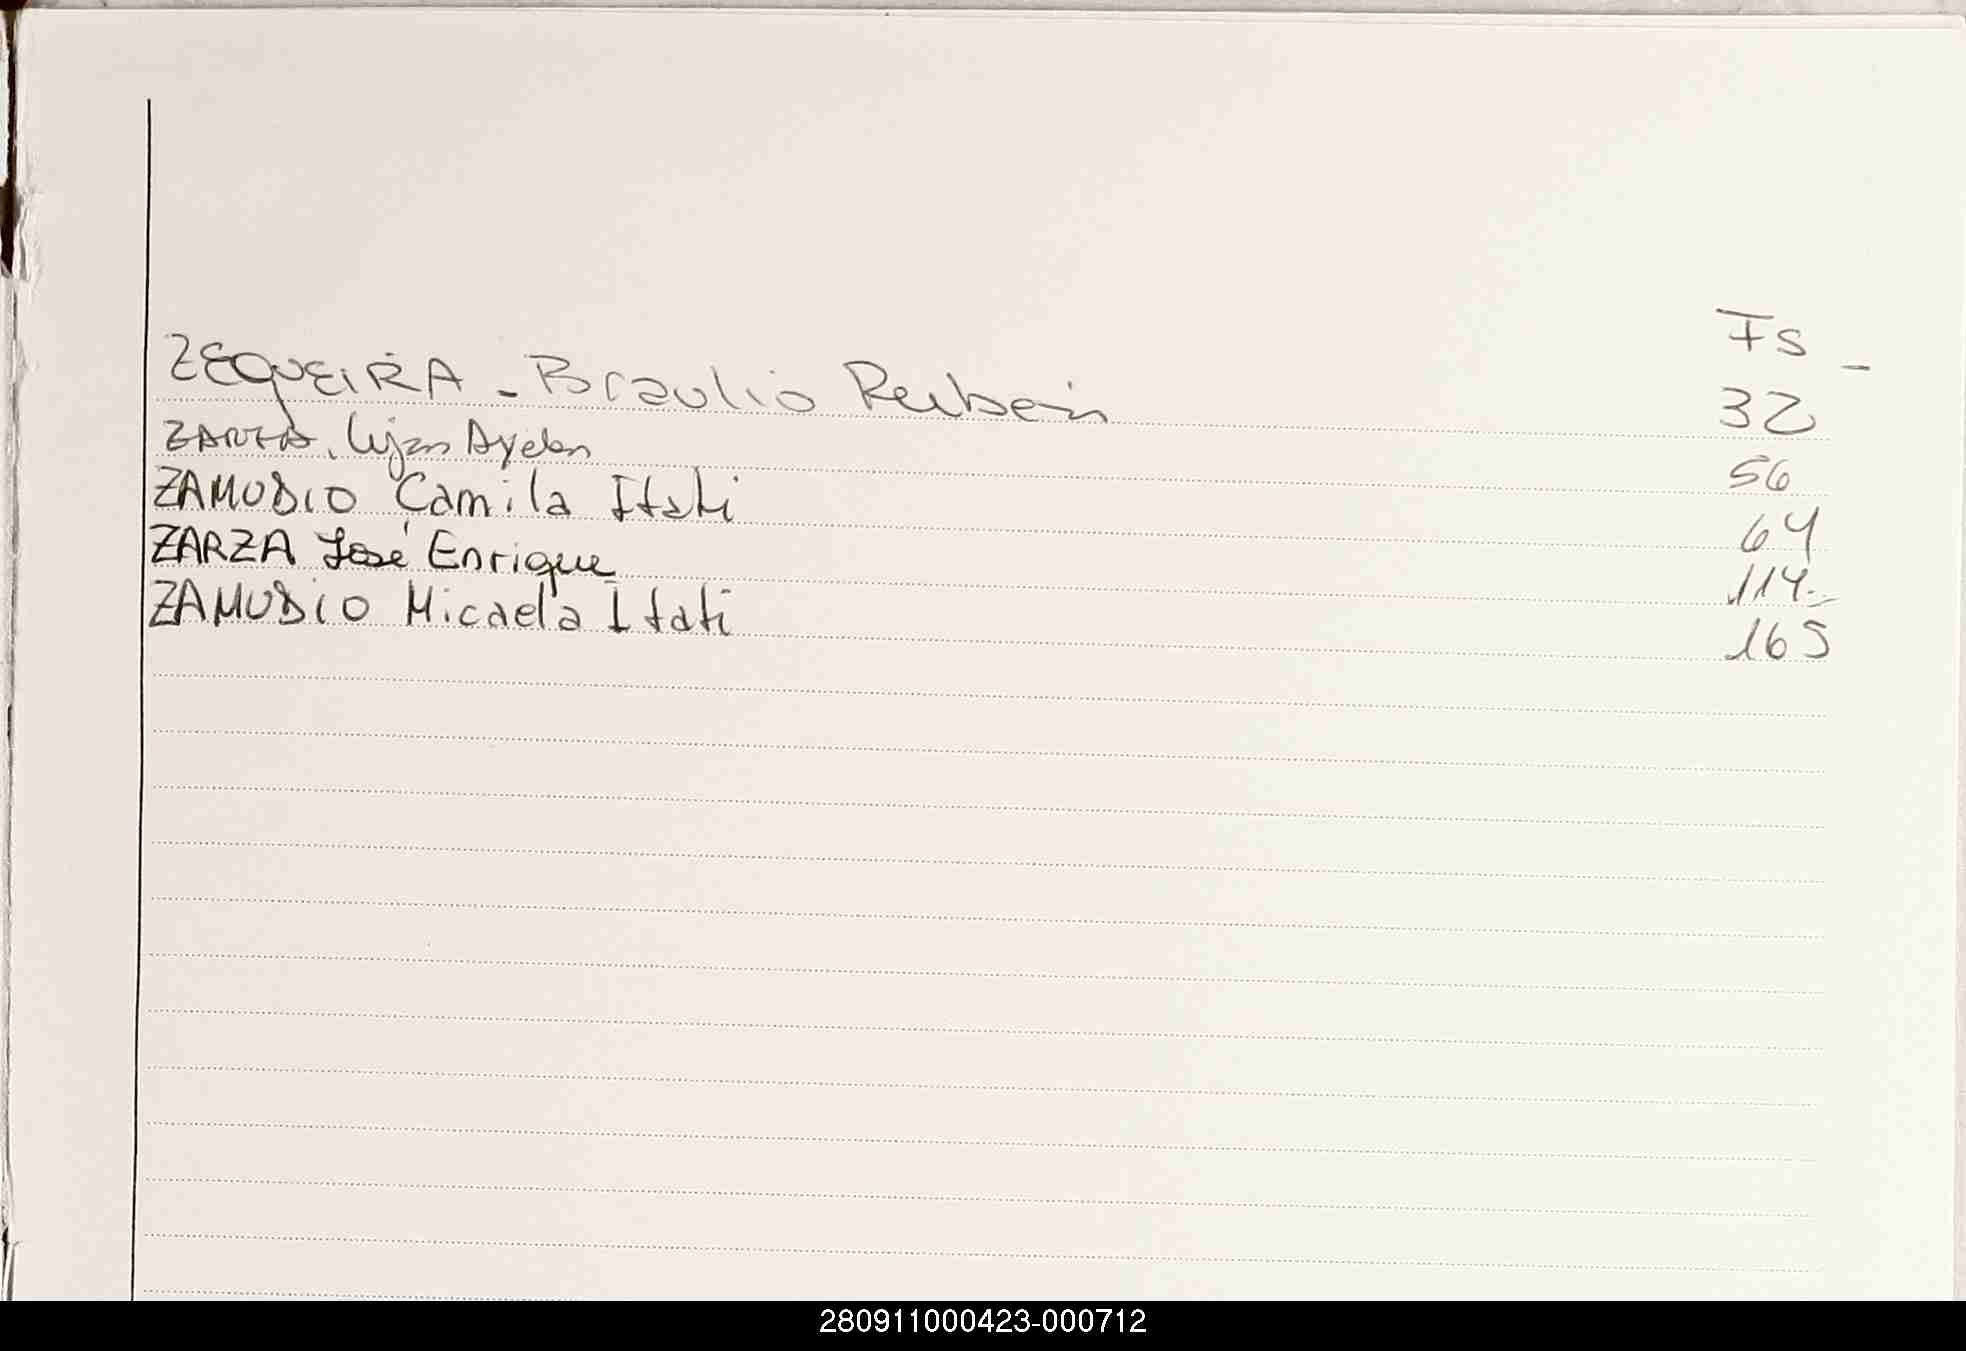 Fs -
ZEQUEIRA - Braulio Ruben 32
ZARZA, Lujan Ayelen 56
ZAMUDIO Camila Itati 64
ZARZA José Enrique 114.-
ZAMUDIO Micaela Itati 165
280911000423-000712